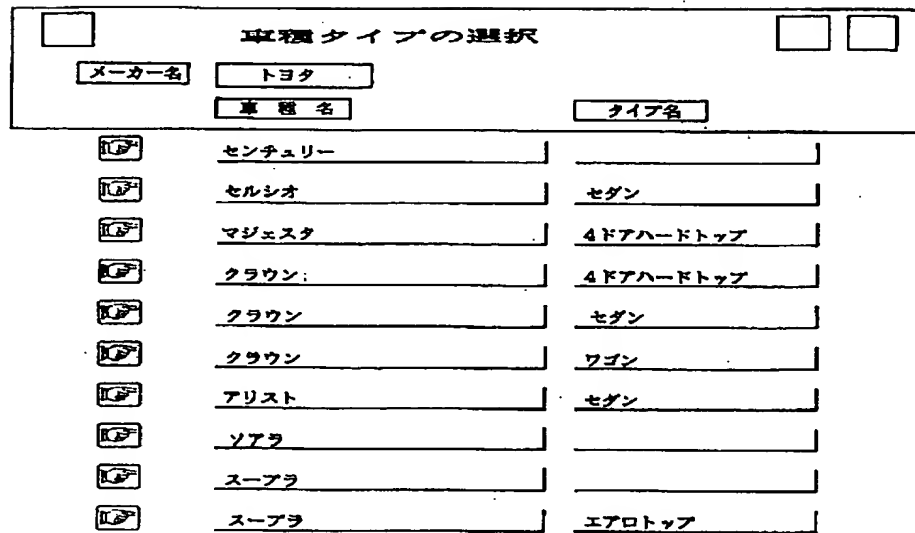 車種タイプの選択
メーカー名 トヨタ
車種名 タイプ名
センチュリー
セルシオ セダン
マジェスタ 4ドアハードトップ
クラウン 4ドアハードトップ
クラウン セダン
クラウン ワゴン
アリスト セダン
ソアラ
スープラ
スープラ エアロトップ